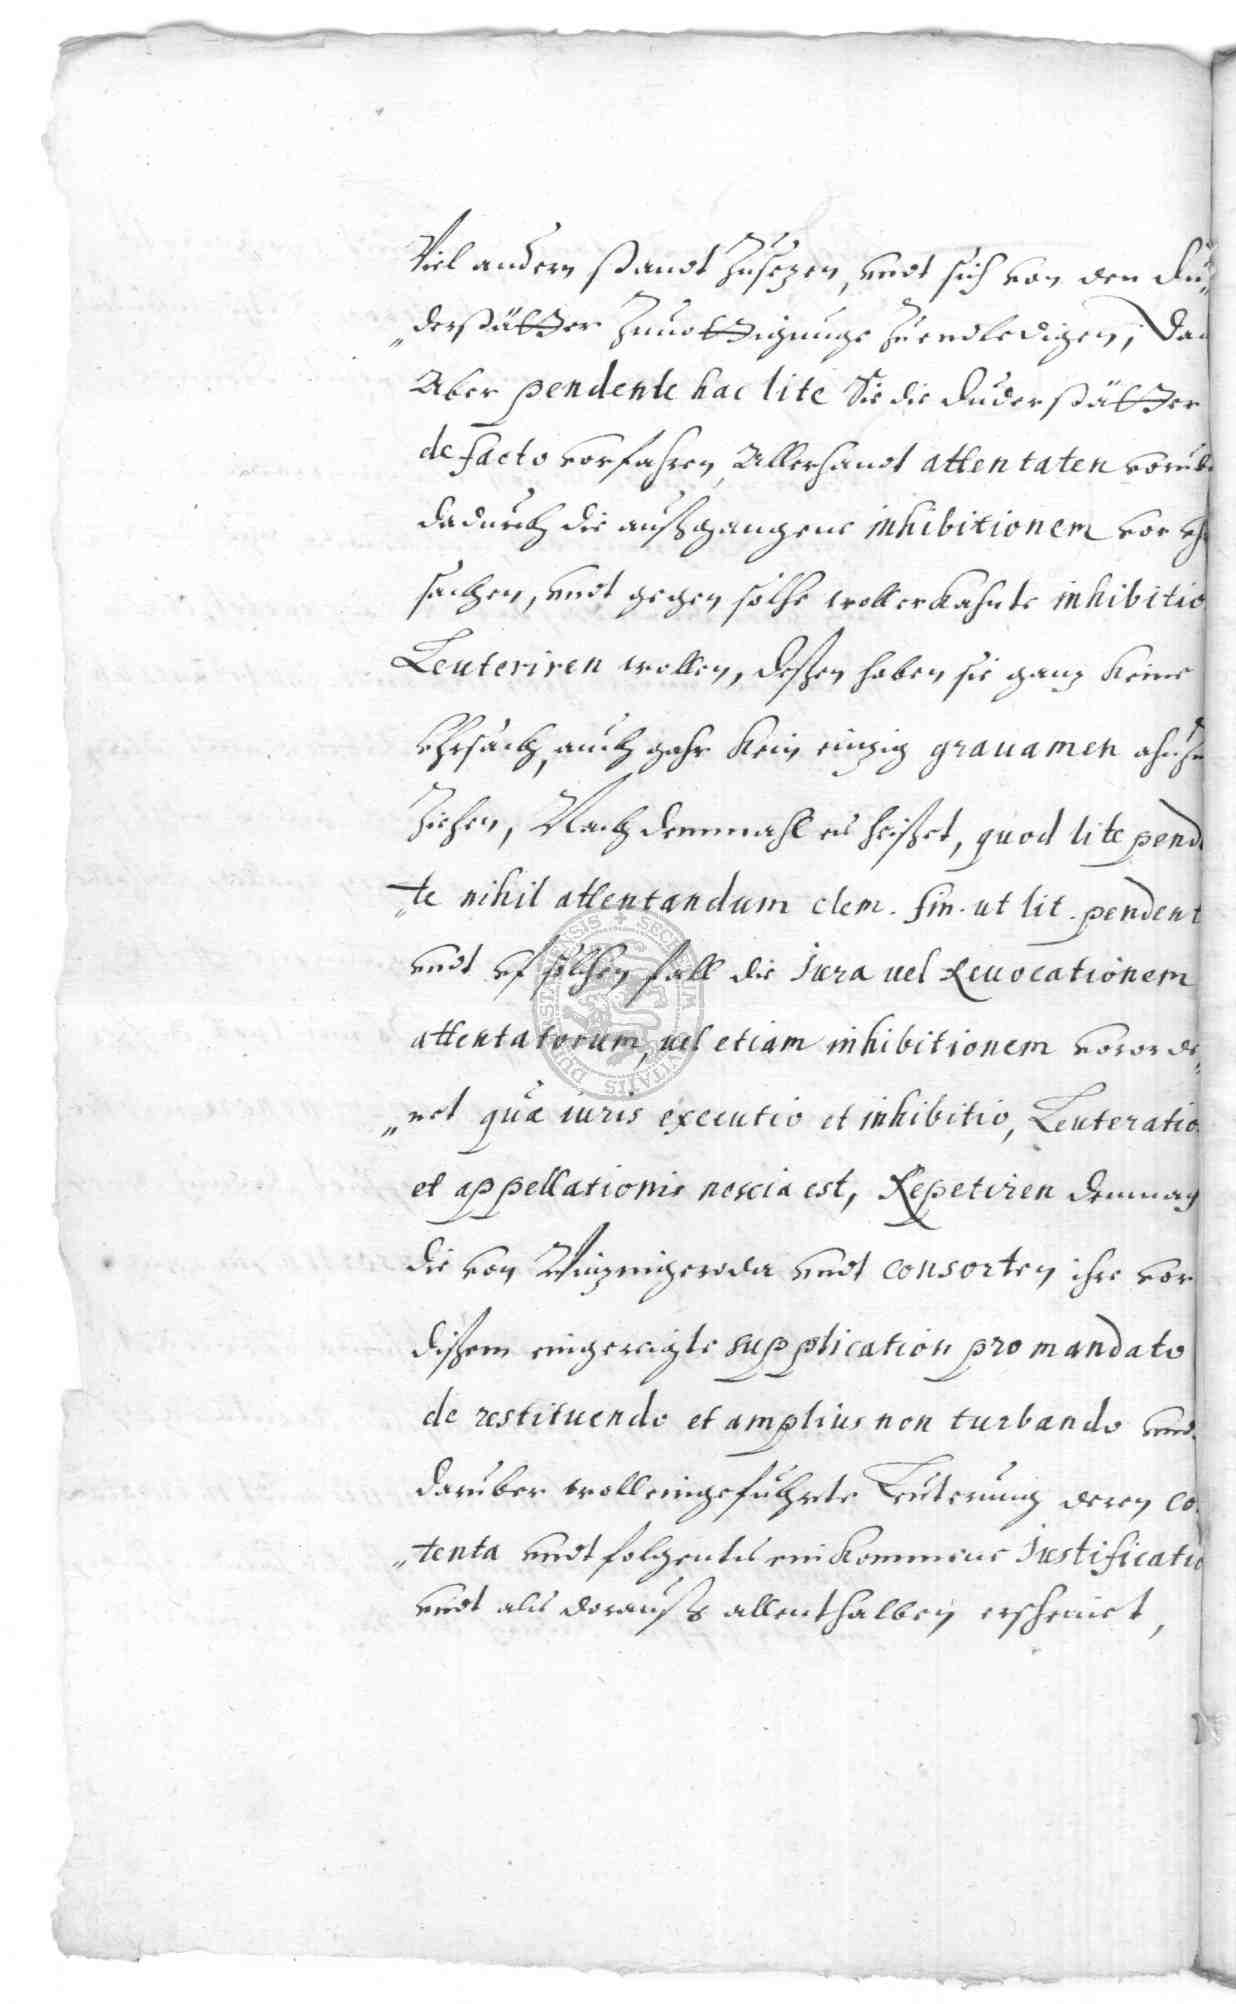 Viel andern standt Zusezen, undt sich von den Du„
„derstätter Zunottigunge Zu endledigen, Da
Aber pendente hac lite Sie die Duderstätter
de facto vorfahren, Allerhandt attentaten vorub
dadurch die außgangene inhibitionem vor Uhr
sachen, undt gegen solche woll erkahnte inhibitio
Leuteriren wollen, deßen haben sie ganz keine
Uhrsach, auch gahr kein einzig gravamen
Ziehen, Nach demmahl es heißet, quod lite pend
„te nihil attentandum clem. fin. ut lit. pendent
undt uf solchen fall die Jura vel Revocationem
attentatorum, vel etiam inhibitionem vororde„
„net quæ iuris executio et inhibitio, Leuteratio
et appellationis nescia est, Repetiren demnach
die von Winzingeroda undt consorten ihre vor
dißem eingereigte supplication pro mandato
de restituendo et amplius non turbando und
daruber woll eingefuhrte Leuterung deren co
„tenta undt folgents einkommene Justificatio
undt als dorauß allenthalben erscheinet,
SECRETUM CIVITATIS DUDERSTATENSIS